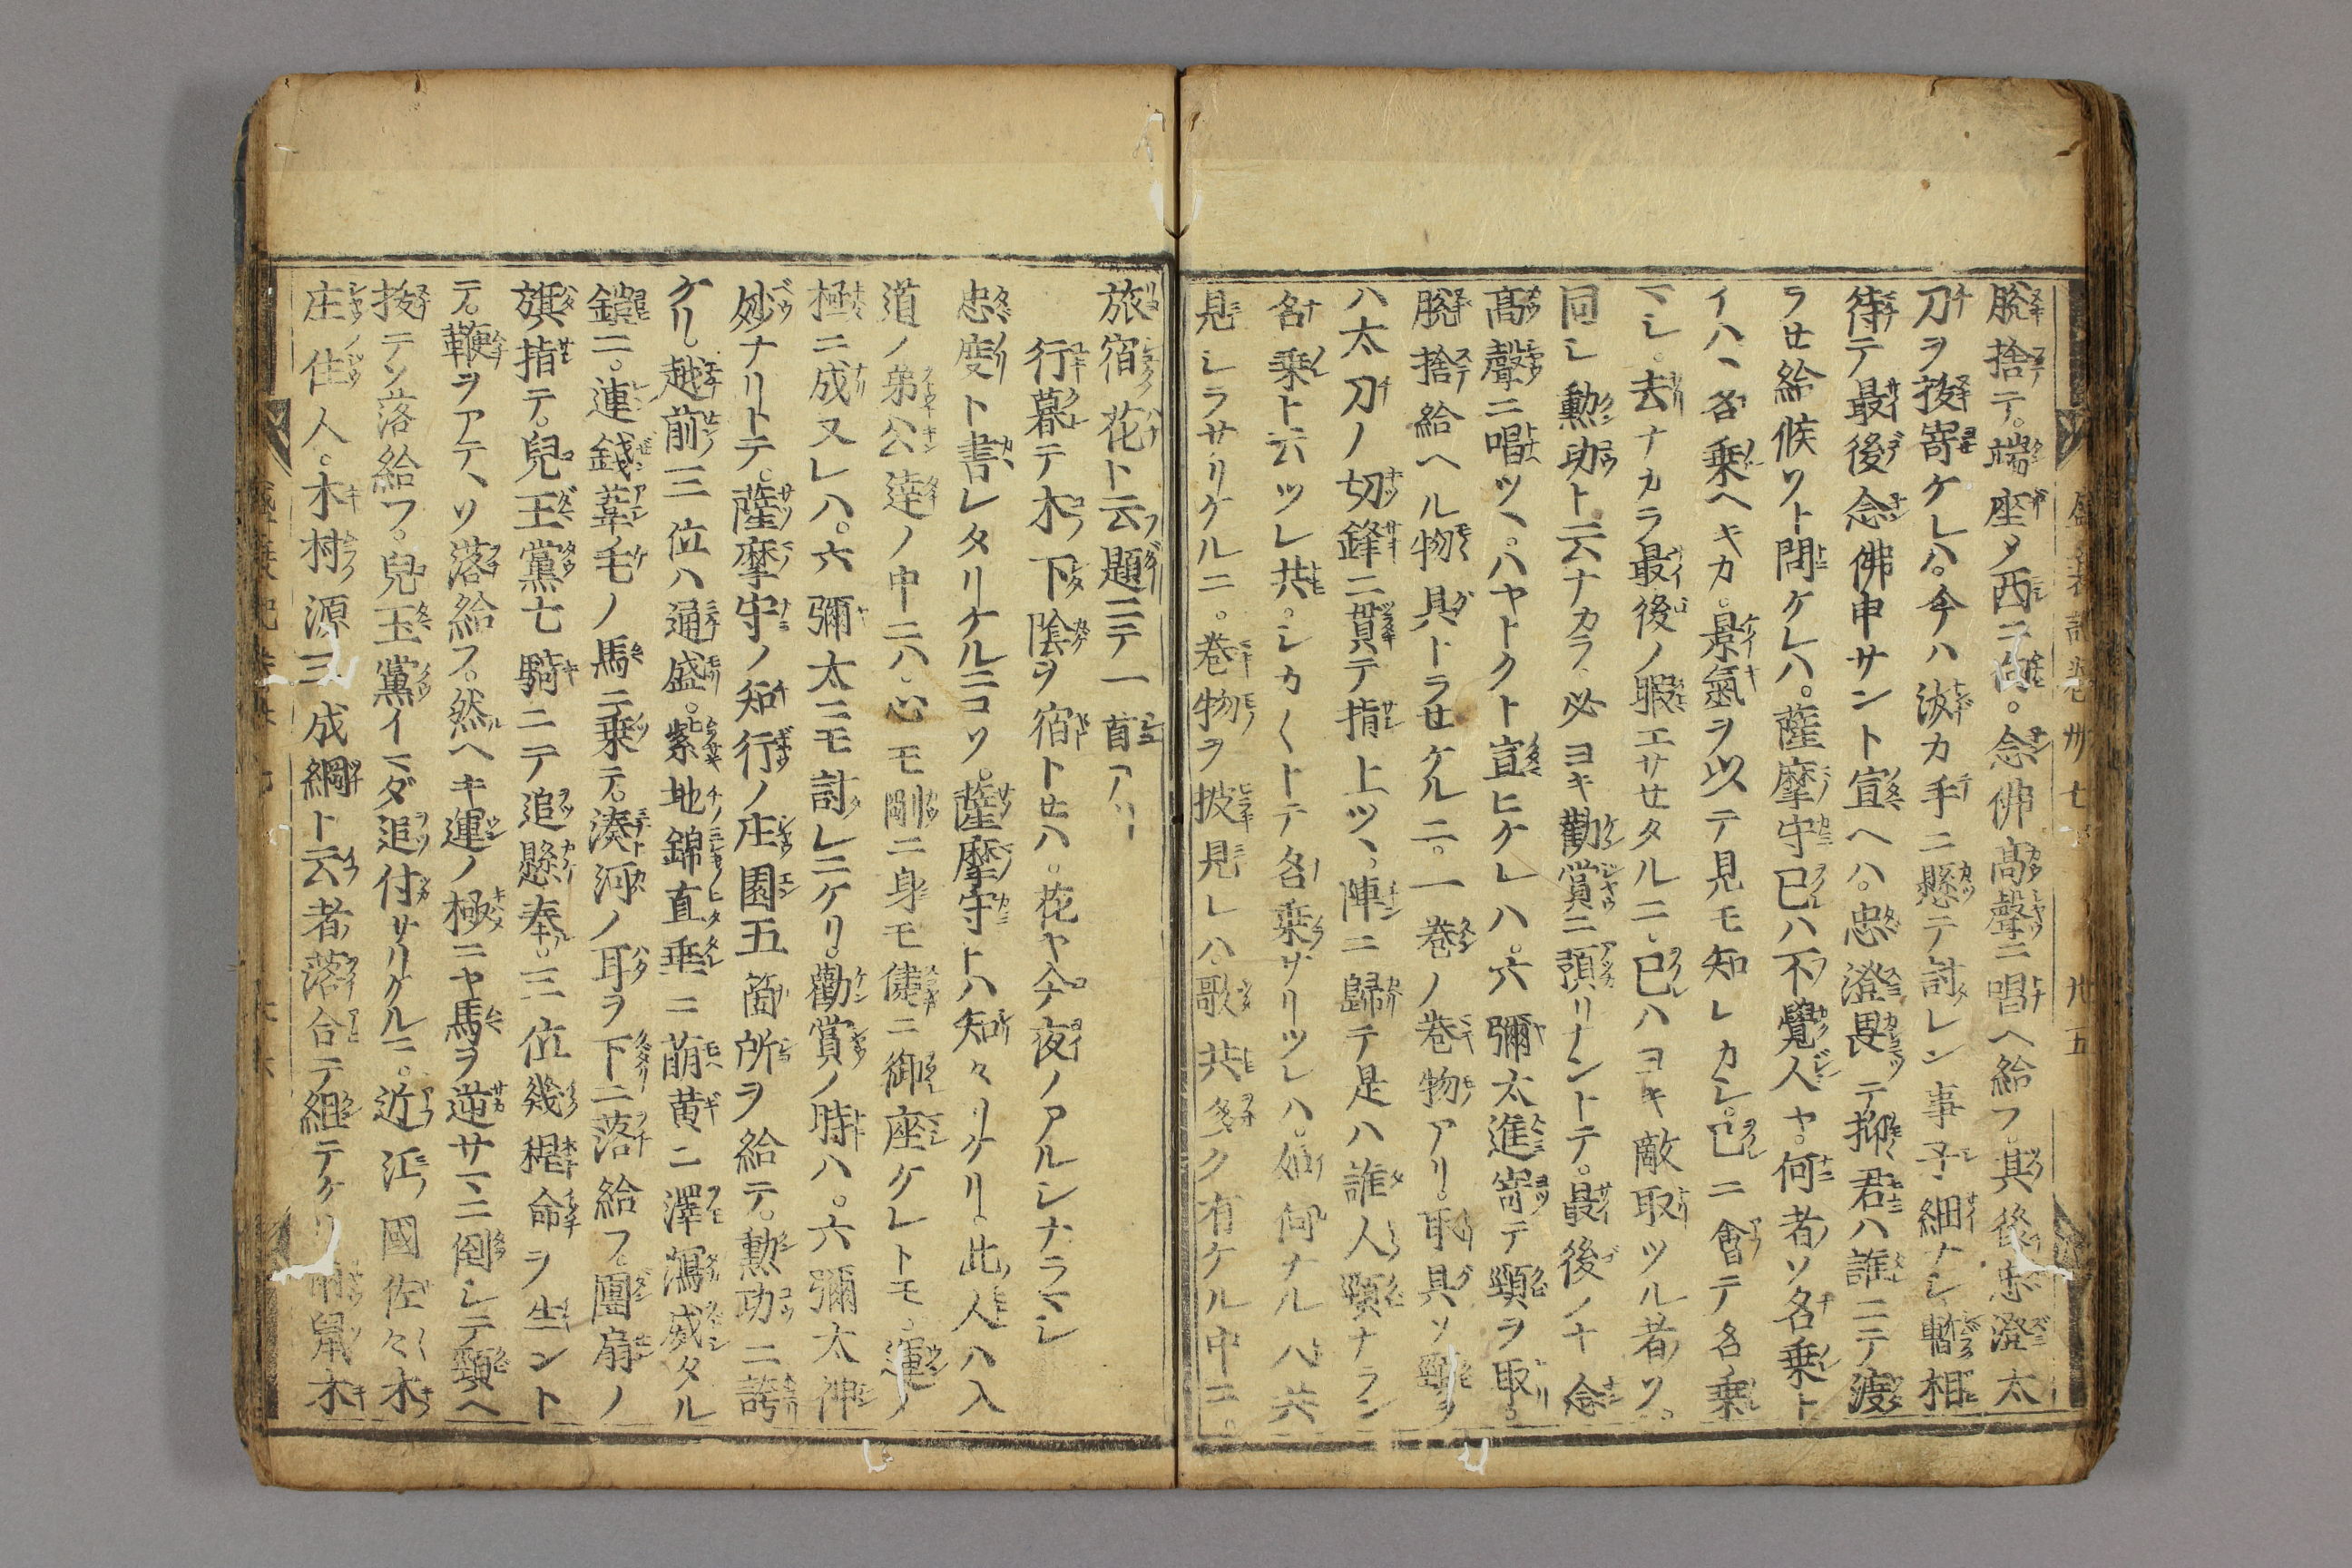 脫捨テ。端座メ西ニ向。念佛高聲ニ唱ヘ給フ。其後忠澄太
刀ヲ拔寄ケレハ。今ハ汝カ手ニ懸テ討レン事子細ナシ暫相
待テ最後念佛申サント宣ヘハ。忠澄畏テ抑君ハ誰ニテ渡
ラせ給候ソト問ケレハ。薩摩守己ハ不覺人ヤ。何者ソ名乗ト
イハヽ名乗ヘキカ。景氣ヲ以テ見モ知レカシ。己ニ會テ名乗
マシ。去ナカラ最後ノ暇エサせタルニ。己ハヨキ敵取ツル者ソ。
同シ勲功ト云ナカラ必ヨキ勸賞ニ預リナントテ。最後ノ十念
高聲ニ唱ツヽ。ハヤトクト宣ヒケレハ。六彌太進寄テ頸ヲ取。
脫捨給ヘル物具トラせケルニ。一卷ノ卷物アリ。取具ソ頸ヲ
ハ太刀ノ切鋒ニ貫テ指上ツヽ。陣ニ歸テ是ハ誰人頸ナラン
名乗ト云ツレ共。シカ〱トテ名乗サリツレハ。如何ナル人共
見シラサリケルニ。卷物ヲ披見レハ。歌共多ク有ケル中ニ。
旅宿花ト云題ニテ一首アリ
行暮テ木下陰ヲ宿トせハ。花ヤ今夜ノアルシナラマシ
忠度ト書レタリケルニコソ。薩摩守トハ知々リケリ。此人ハ入
道ノ弟公達ノ中ニハ。心モ剛ニ身モ健ニ御座ケレトモ。運ノ
極ニ成又レハ。六彌太ニモ討レニケリ。勸賞ノ時ハ。六彌太神
妙ナリトテ。薩摩守ノ知行ノ庄園五箇所ヲ給テ。勲功ニ誇
ケリ。越前三位ハ通盛。紫地錦直垂ニ萠黄ニ澤瀉威タル
鎧ニ。連錢葦毛ノ馬ニ乗テ。湊河ノ耳ヲ下ニ落給フ。團扇ノ
旗指テ。兒玉黨七騎ニテ追懸奉。三位幾程命ヲ生ント
テ。鞭ヲアテヽソ落給フ。然ヘキ運ノ極ニヤ馬ヲ逆サマニ倒シテ頸ヘ
拔テソ落給フ。兒玉黨イマダ追付サリケルニ。近江國佐々木
庄住人。木村源三成綱ト云者落合テ組テケリ